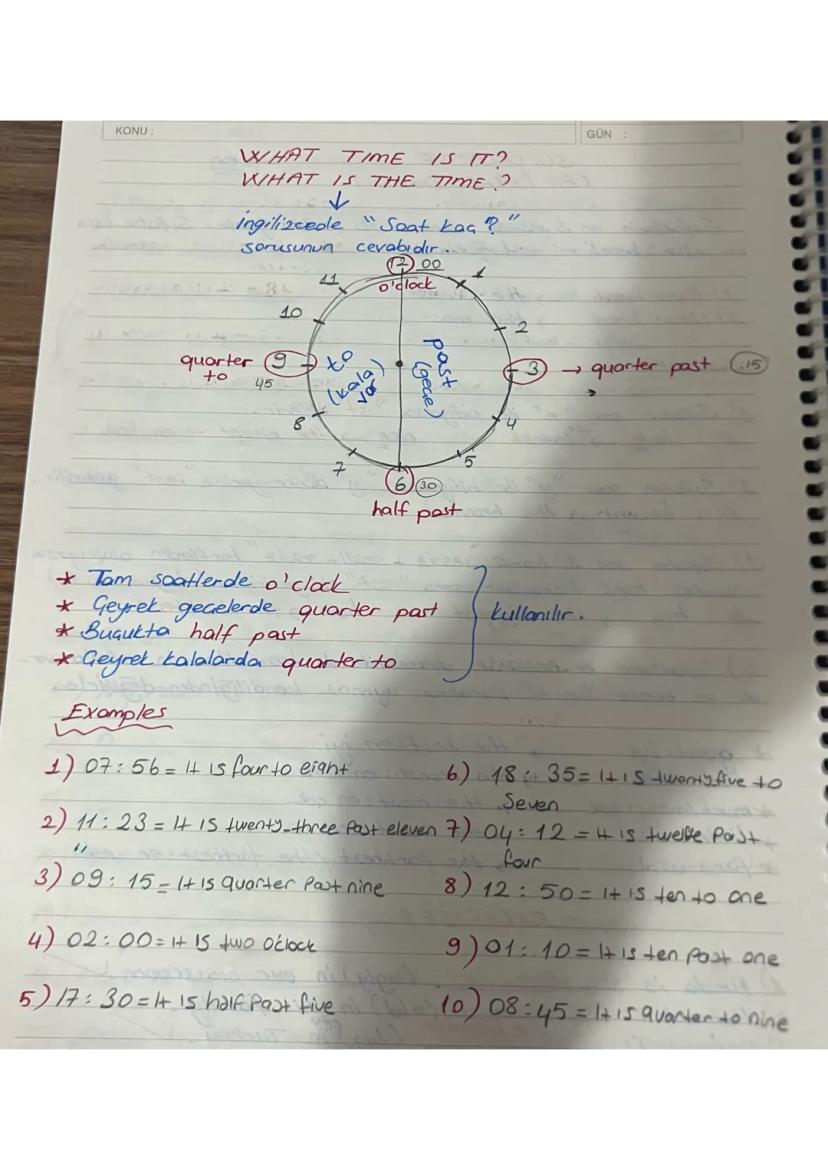 KONU :
GÜN :
WHAT TIME IS IT?
WHAT IS THE TIME?
ingilizcede "Saat kaç?"
sorusunun cevabıdır.
12 00
o'clock
11
1
10
2
quarter to
9
45
to (kala var)
past (geçe)
3 → quarter past .15
8
4
7
5
6 30
half past
* Tam saatlerde o'clock
* Çeyrek geçelerde quarter past
* Buçukta half past
* Çeyrek kalalarda quarter to
kullanılır.
Examples
1) 07:56 = It is four to eight
2) 11:23 = It is twenty-three past eleven
3) 09:15 = It is quarter past nine
4) 02:00 = It is two o'clock
5) 17:30 = It is half past five
6) 18:35 = It is twenty five to
seven
7) 04:12 = It is twelve past
four
8) 12:50 = It is ten to one
9) 01:10 = It is ten past one
10) 08:45 = It is quarter to nine